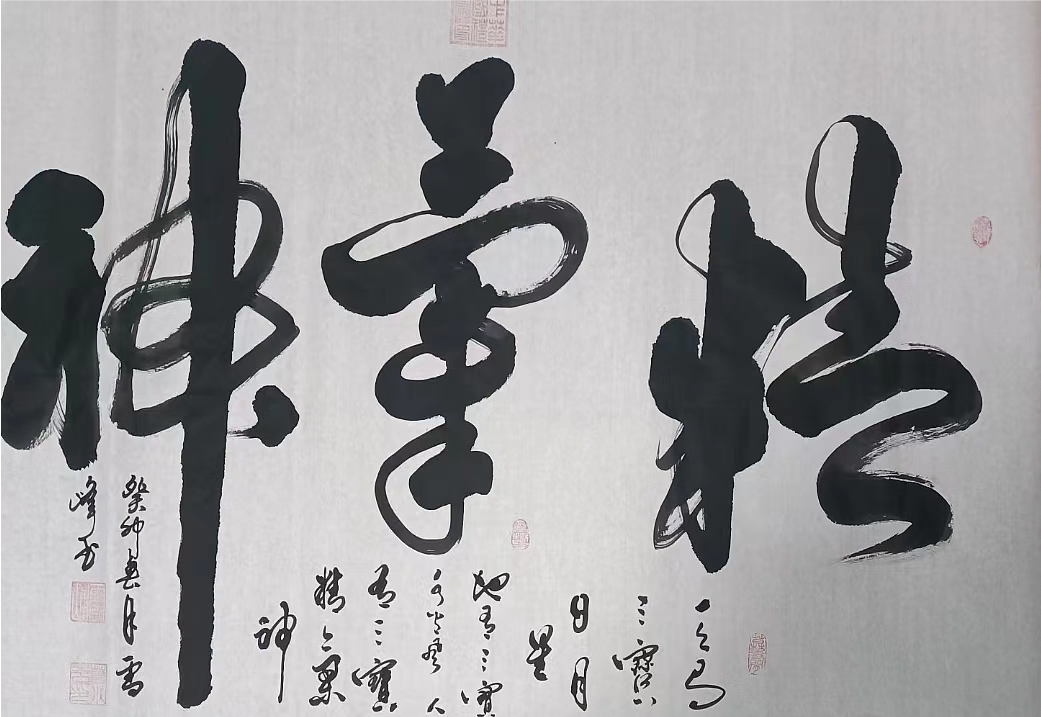 精氣神
天有
三寶
日月
星
地有三寶
水火風人
有三寶
精氣
神
癸卯春月雪
峰书